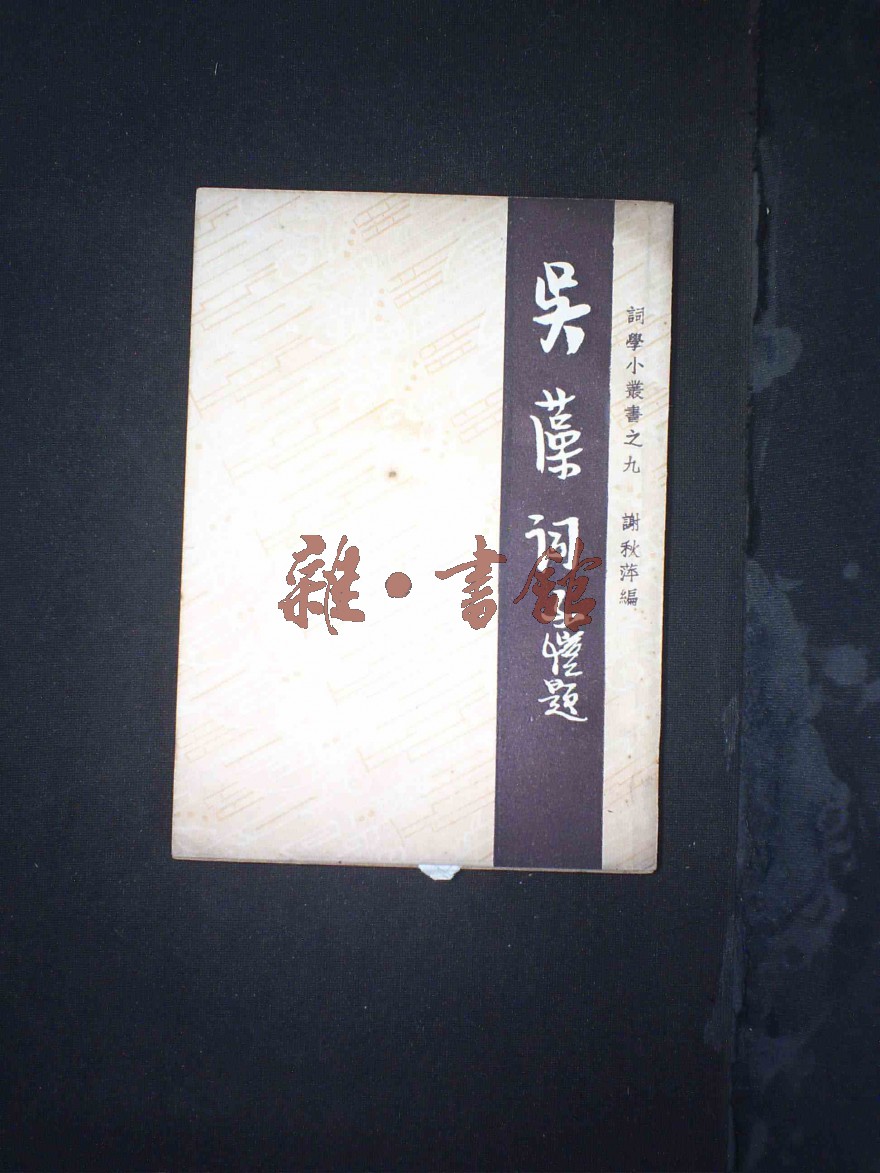 詞學小叢書之九 謝秋萍編
吳藻詞
愷題
雜·書館